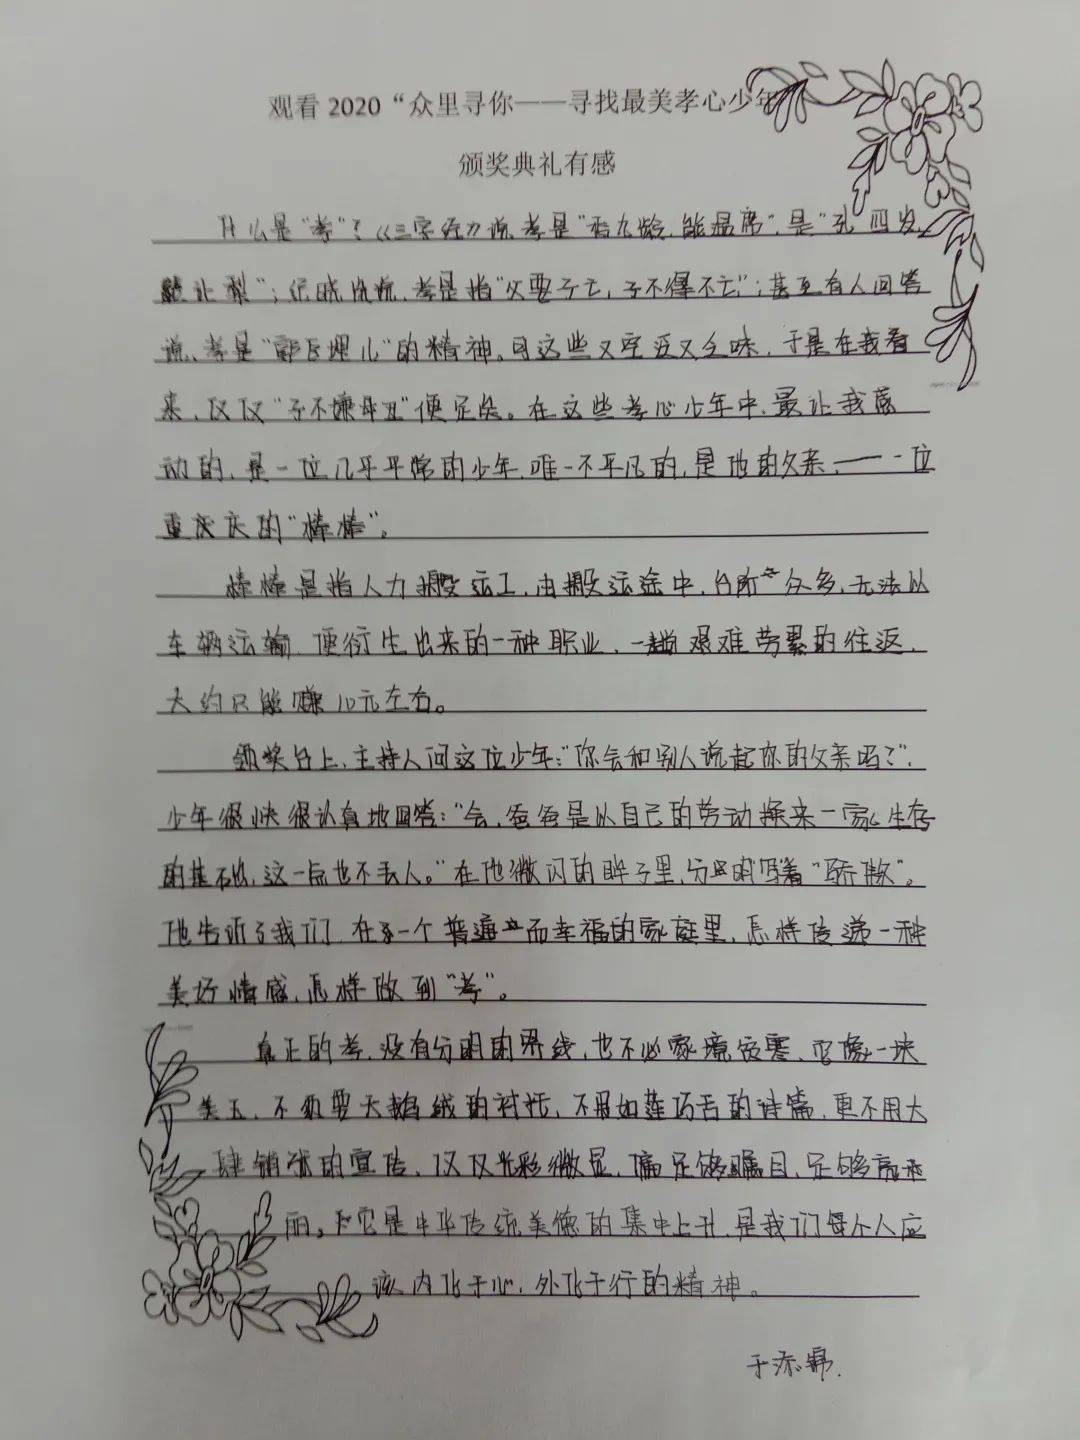 观看 2020 “众里寻你——寻找最美孝心少年
颁奖典礼有感
什么是“孝”？《三字经》说，孝是“香九龄，能温席”，是“孔四岁，
能让梨”；纪晓岚说，孝是指“父要子亡，子不得不亡”；甚至有人回答
说，孝是“郭巨埋儿”的精神。可这些又空泛又乏味，于是在我看
来，仅仅“子不嫌母丑”便足矣。在这些孝心少年中，最让我感
动的，是一位几乎平常的少年，唯一不平凡的，是他的父亲，——一位
重庆的“棒棒”。
棒棒是指人力搬运工，由搬运途中，台阶众多，无法以
车辆运输，便衍生出来的一种职业，一趟艰难劳累的往返，
大约只能赚10元左右。
颁奖台上，主持人问这位少年：“你会和别人说起你的父亲吗？”，
少年很快很认真地回答：“会，爸爸是以自己的劳动换来一家生存
的基础，这一点也不丢人。”在他微闪的眸子里，分明写着“骄傲”。
他告诉了我们，在一个普通而幸福的家庭里，怎样传递一种
美好情感，怎样做到“孝”。
真正的孝，没有分明的界线，也不必家境贫寒，它像一块
美玉，不须要天鹅绒的衬托，不用如莲巧舌的诗篇，更不用大
肆铺张的宣传，仅仅光彩微显，便足够瞩目，足够
丽。它是中华传统美德的集中上升，是我们每个人应
该内化于心，外化于行的精神。
于添